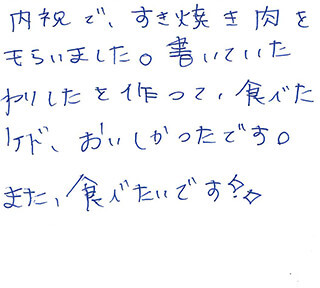 内祝で、すき焼き肉を
もらいました。書いていた
わりしたを作って、食べた
ケド、おいしかったです。
また、食べたいです♪。